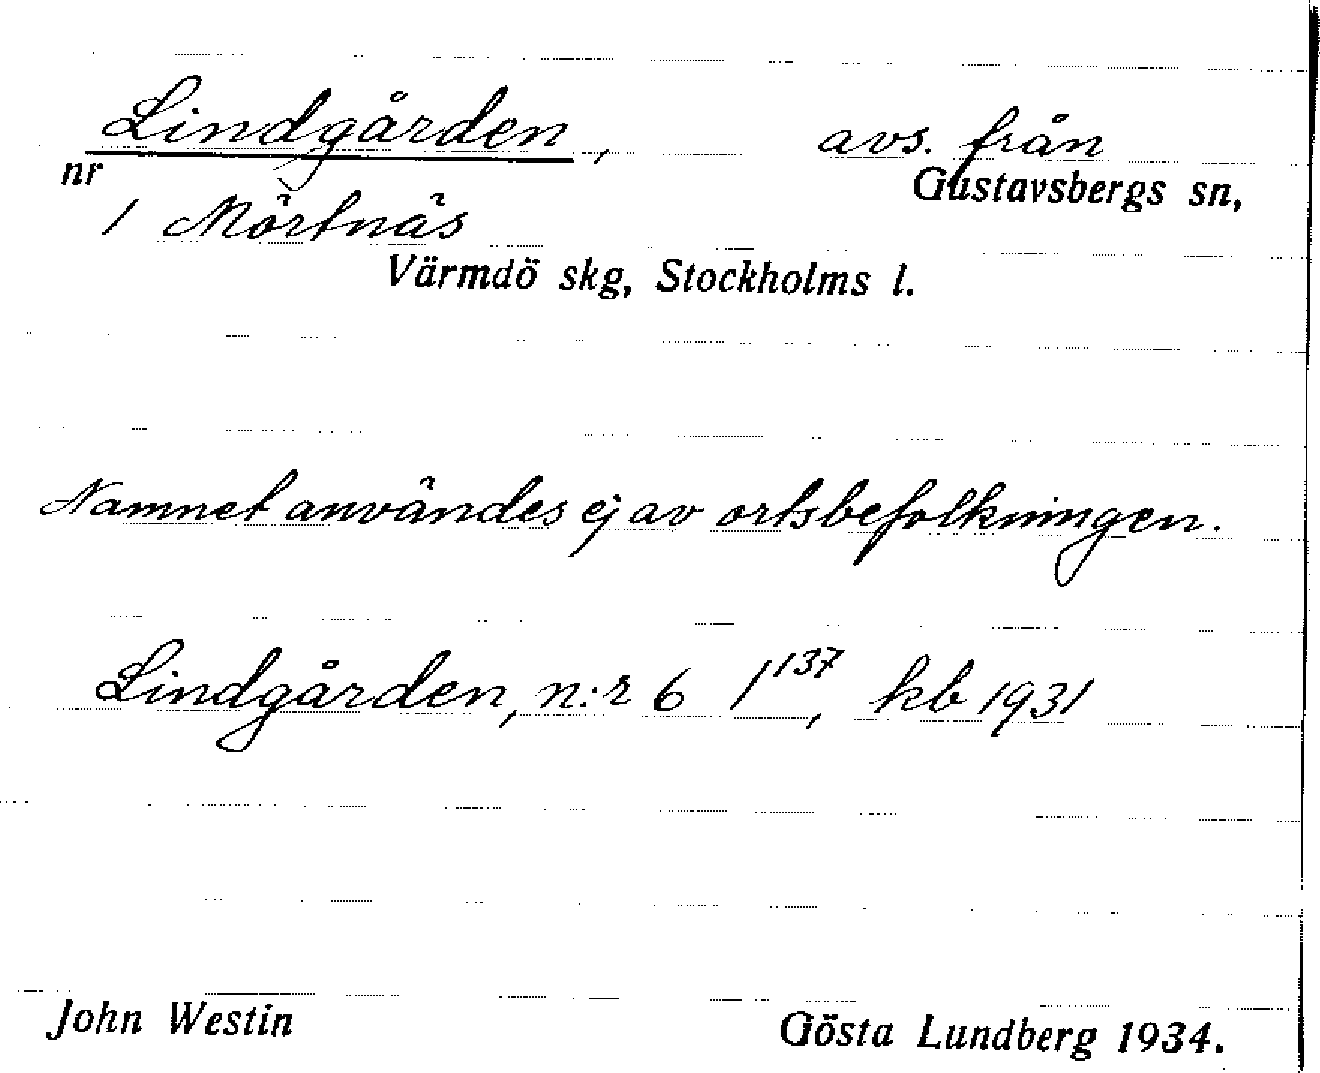 Lindgården, avs. från
nr Gustavsbergs sn,
1 Mörtnäs
Värmdö skg, Stockholms l.
Namnet användes ej av ortsbefolkningen.
Lindgården, n:r 6 1¹³⁷, kb 1931
John Westin Gösta Lundberg 1934.